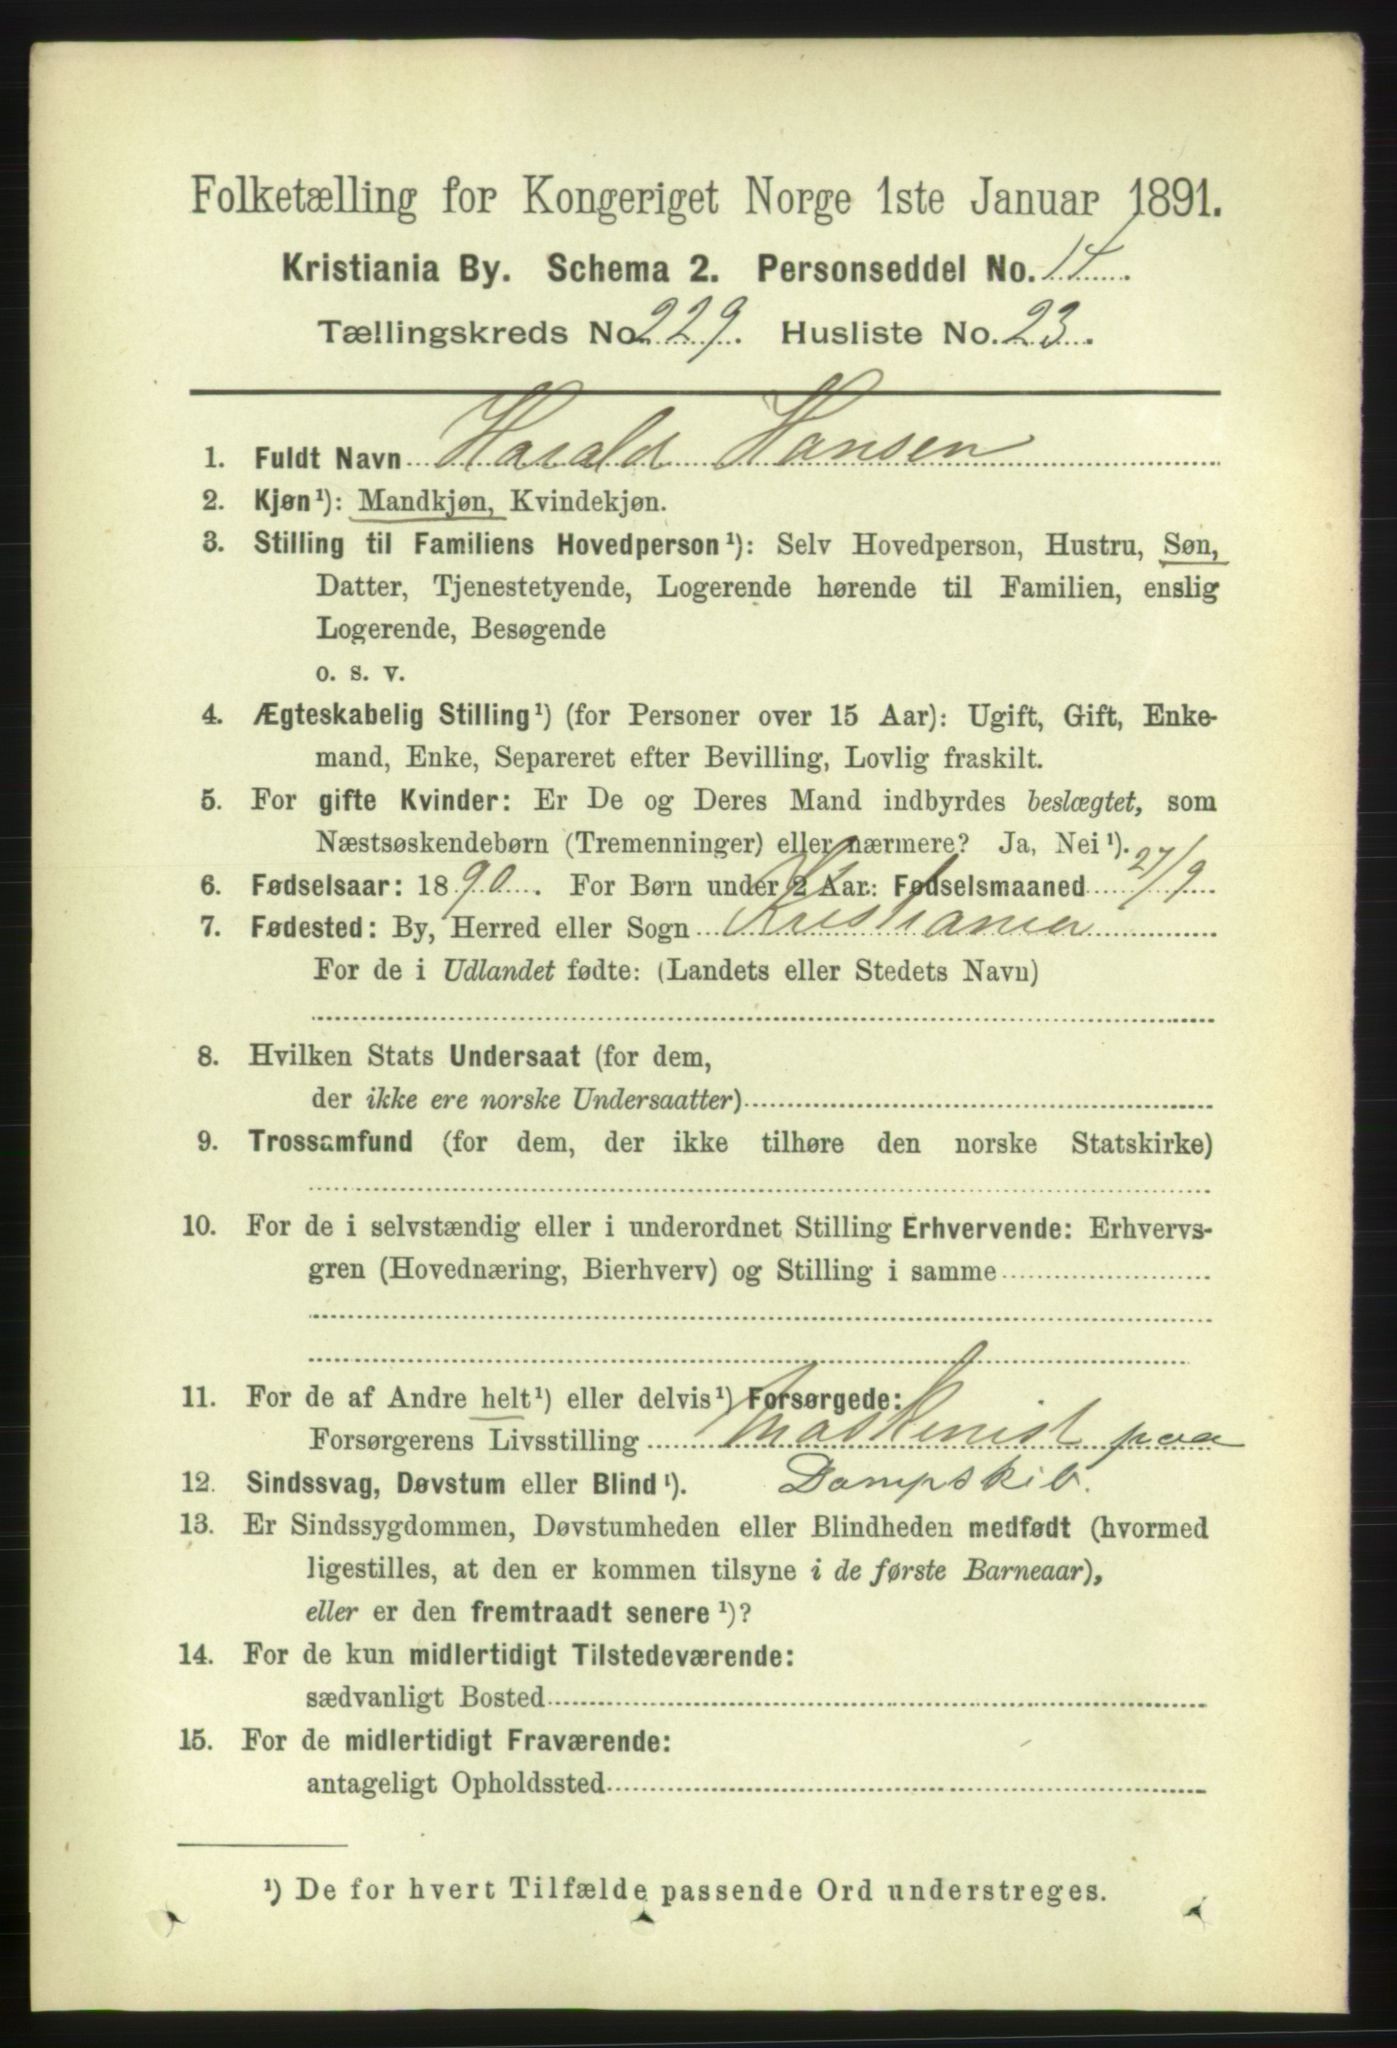 Folketælling for Kongeriget Norge 1ste Januar 1891.
Kristiania By. Schema 2. Personseddel No. 14
Tællingskreds No. 229. Husliste No. 23.
1. Fuldt Navn Harald Hansen
2. Kjøn¹): Mandkjøn, Kvindekjøn.
3. Stilling til Familiens Hovedperson¹): Selv Hovedperson, Hustru, Søn,
Datter, Tjenestetyende, Logerende hørende til Familien, enslig
Logerende, Besøgende
o. s. v.
4. Ægteskabelig Stilling¹) (for Personer over 15 Aar): Ugift, Gift, Enke-
mand, Enke, Separeret efter Bevilling, Lovlig fraskilt.
5. For gifte Kvinder: Er De og Deres Mand indbyrdes beslægtet, som
Næstsøskendebørn (Tremenninger) eller nærmere? Ja, Nei¹).
6. Fødselsaar: 1890. For Børn under 2 Aar: Fødselsmaaned 27/9
7. Fødested: By, Herred eller Sogn Kristiania
For de i Udlandet fødte: (Landets eller Stedets Navn)
8. Hvilken Stats Undersaat (for dem,
der ikke ere norske Undersaatter)
9. Trossamfund (for dem, der ikke tilhøre den norske Statskirke)
10. For de i selvstændig eller i underordnet Stilling Erhvervende: Erhvervs-
gren (Hovednæring, Bierhverv) og Stilling i samme
11. For de af Andre helt¹) eller delvis¹) Forsørgede:
Forsørgerens Livsstilling Maskinist paa
12. Sindssvag, Døvstum eller Blind¹). Dampskib.
13. Er Sindssygdommen, Døvstumheden eller Blindheden medfødt (hvormed
ligestilles, at den er kommen tilsyne i de første Barneaar),
eller er den fremtraadt senere¹)?
14. For de kun midlertidigt Tilstedeværende:
sædvanligt Bosted
15. For de midlertidigt Fraværende:
antageligt Opholdssted
¹) De for hvert Tilfælde passende Ord understreges.